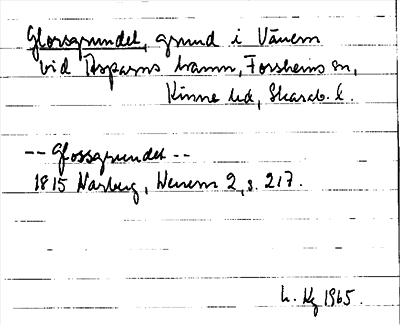 Glorsgrundet, grund i Vänern
vid Asparns hamn, Forshems sn,
Kinne hd, Skarab. l.
-- Glossgrundet --
1815 Warberg, Wenern 2, s. 217.
L. Kg 1965.